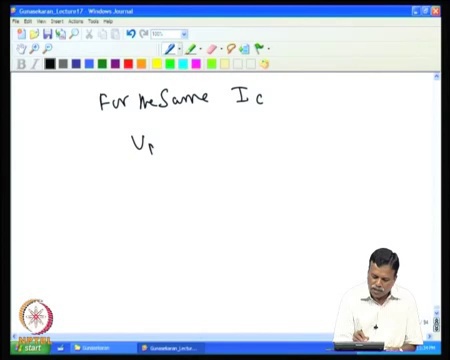 Gunasekaran_Lecture17 - Windows Journal
File Edit View Insert Actions Tools Help
100%
B I
For the Same Ic
start
Gunasekaran
Gunasekaran_Lectu...